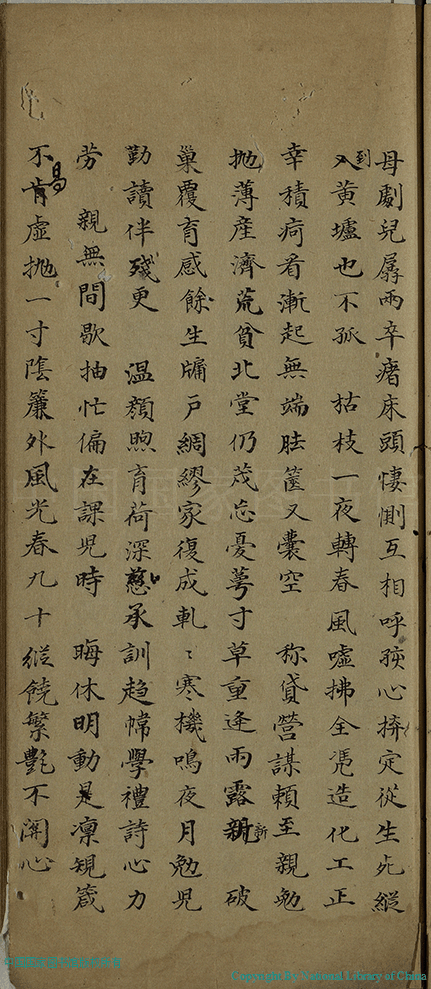 母劇兒孱兩卒瘏床頭悽惻互相呼殘心拚定從生死縱
入到黃壚也不孤　枯枝一夜轉春風噓拂全凴造化工正
幸積疴看漸起無端胠篋又囊空　称貸營謀賴至親勉
抛薄産濟荒貧北堂仍茂忘憂萼寸草重逢雨露新　破
巢覆育感餘生牗戶綢繆家復成軋〻寒機鳴夜月勉兒
勤讀伴殘更　温顏煦育荷深慈承訓趨幃學禮詩心力
勞　親無間歇抽忙偏在課兒時　晦休明動是凛規箴
不肯易虛抛一寸隂簾外風光春九十縱饒繁艷不開心
Copyright by National Library of China